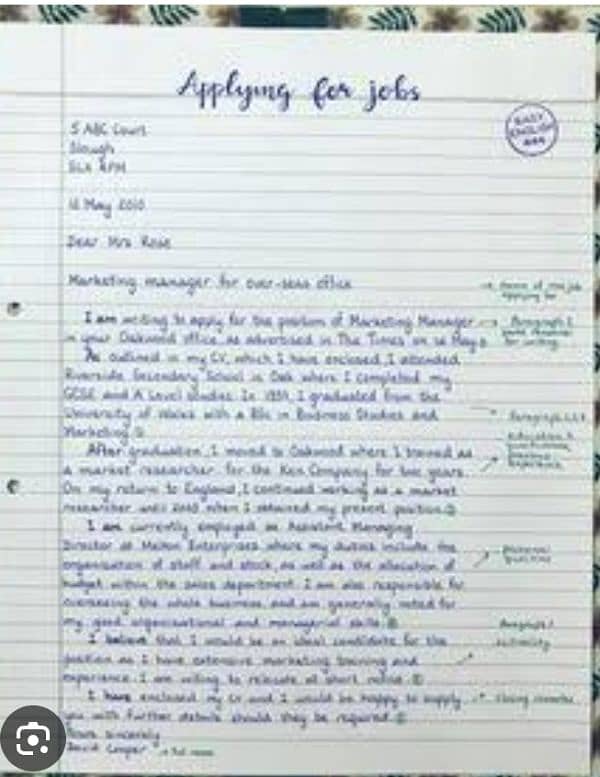 Applying for jobs
5 ABC Court
Slough
EASY
ENGLISH
May 2010
Dear Mrs Rose
Marketing manager for over-seas office
name of the job
applying for
I am writing to apply for the position of Marketing Manager
Paragraph 1
in your Oakwood office, as advertised in The Times on May
for writing
As outlined in my CV, which I have enclosed, I attended
Riverside Secondary School in where I completed my
GCSE and A Level studies. In I graduated from the
University of Wales with a BSc in Business Studies and
Marketing.
After graduation, I moved to Oakwood where I trained as
a market researcher for the Company for two years.
On my return to England, I continued working as a market
researcher until when I obtained my present position.
I am currently employed as Assistant Managing
Director at Enterprises where my duties include the
organisation of staff and stock, as well as the allocation of
budget within the sales department. I am also responsible for
overseeing the whole business and am generally noted for
my good organisational and managerial skills.
I believe that I would be an ideal candidate for the
suitability
position as I have extensive marketing training and
experience. I am willing to relocate at short notice.
I have enclosed my CV and I would be happy to supply
closing remarks
you with further details should they be required.
Yours sincerely
David Cooper